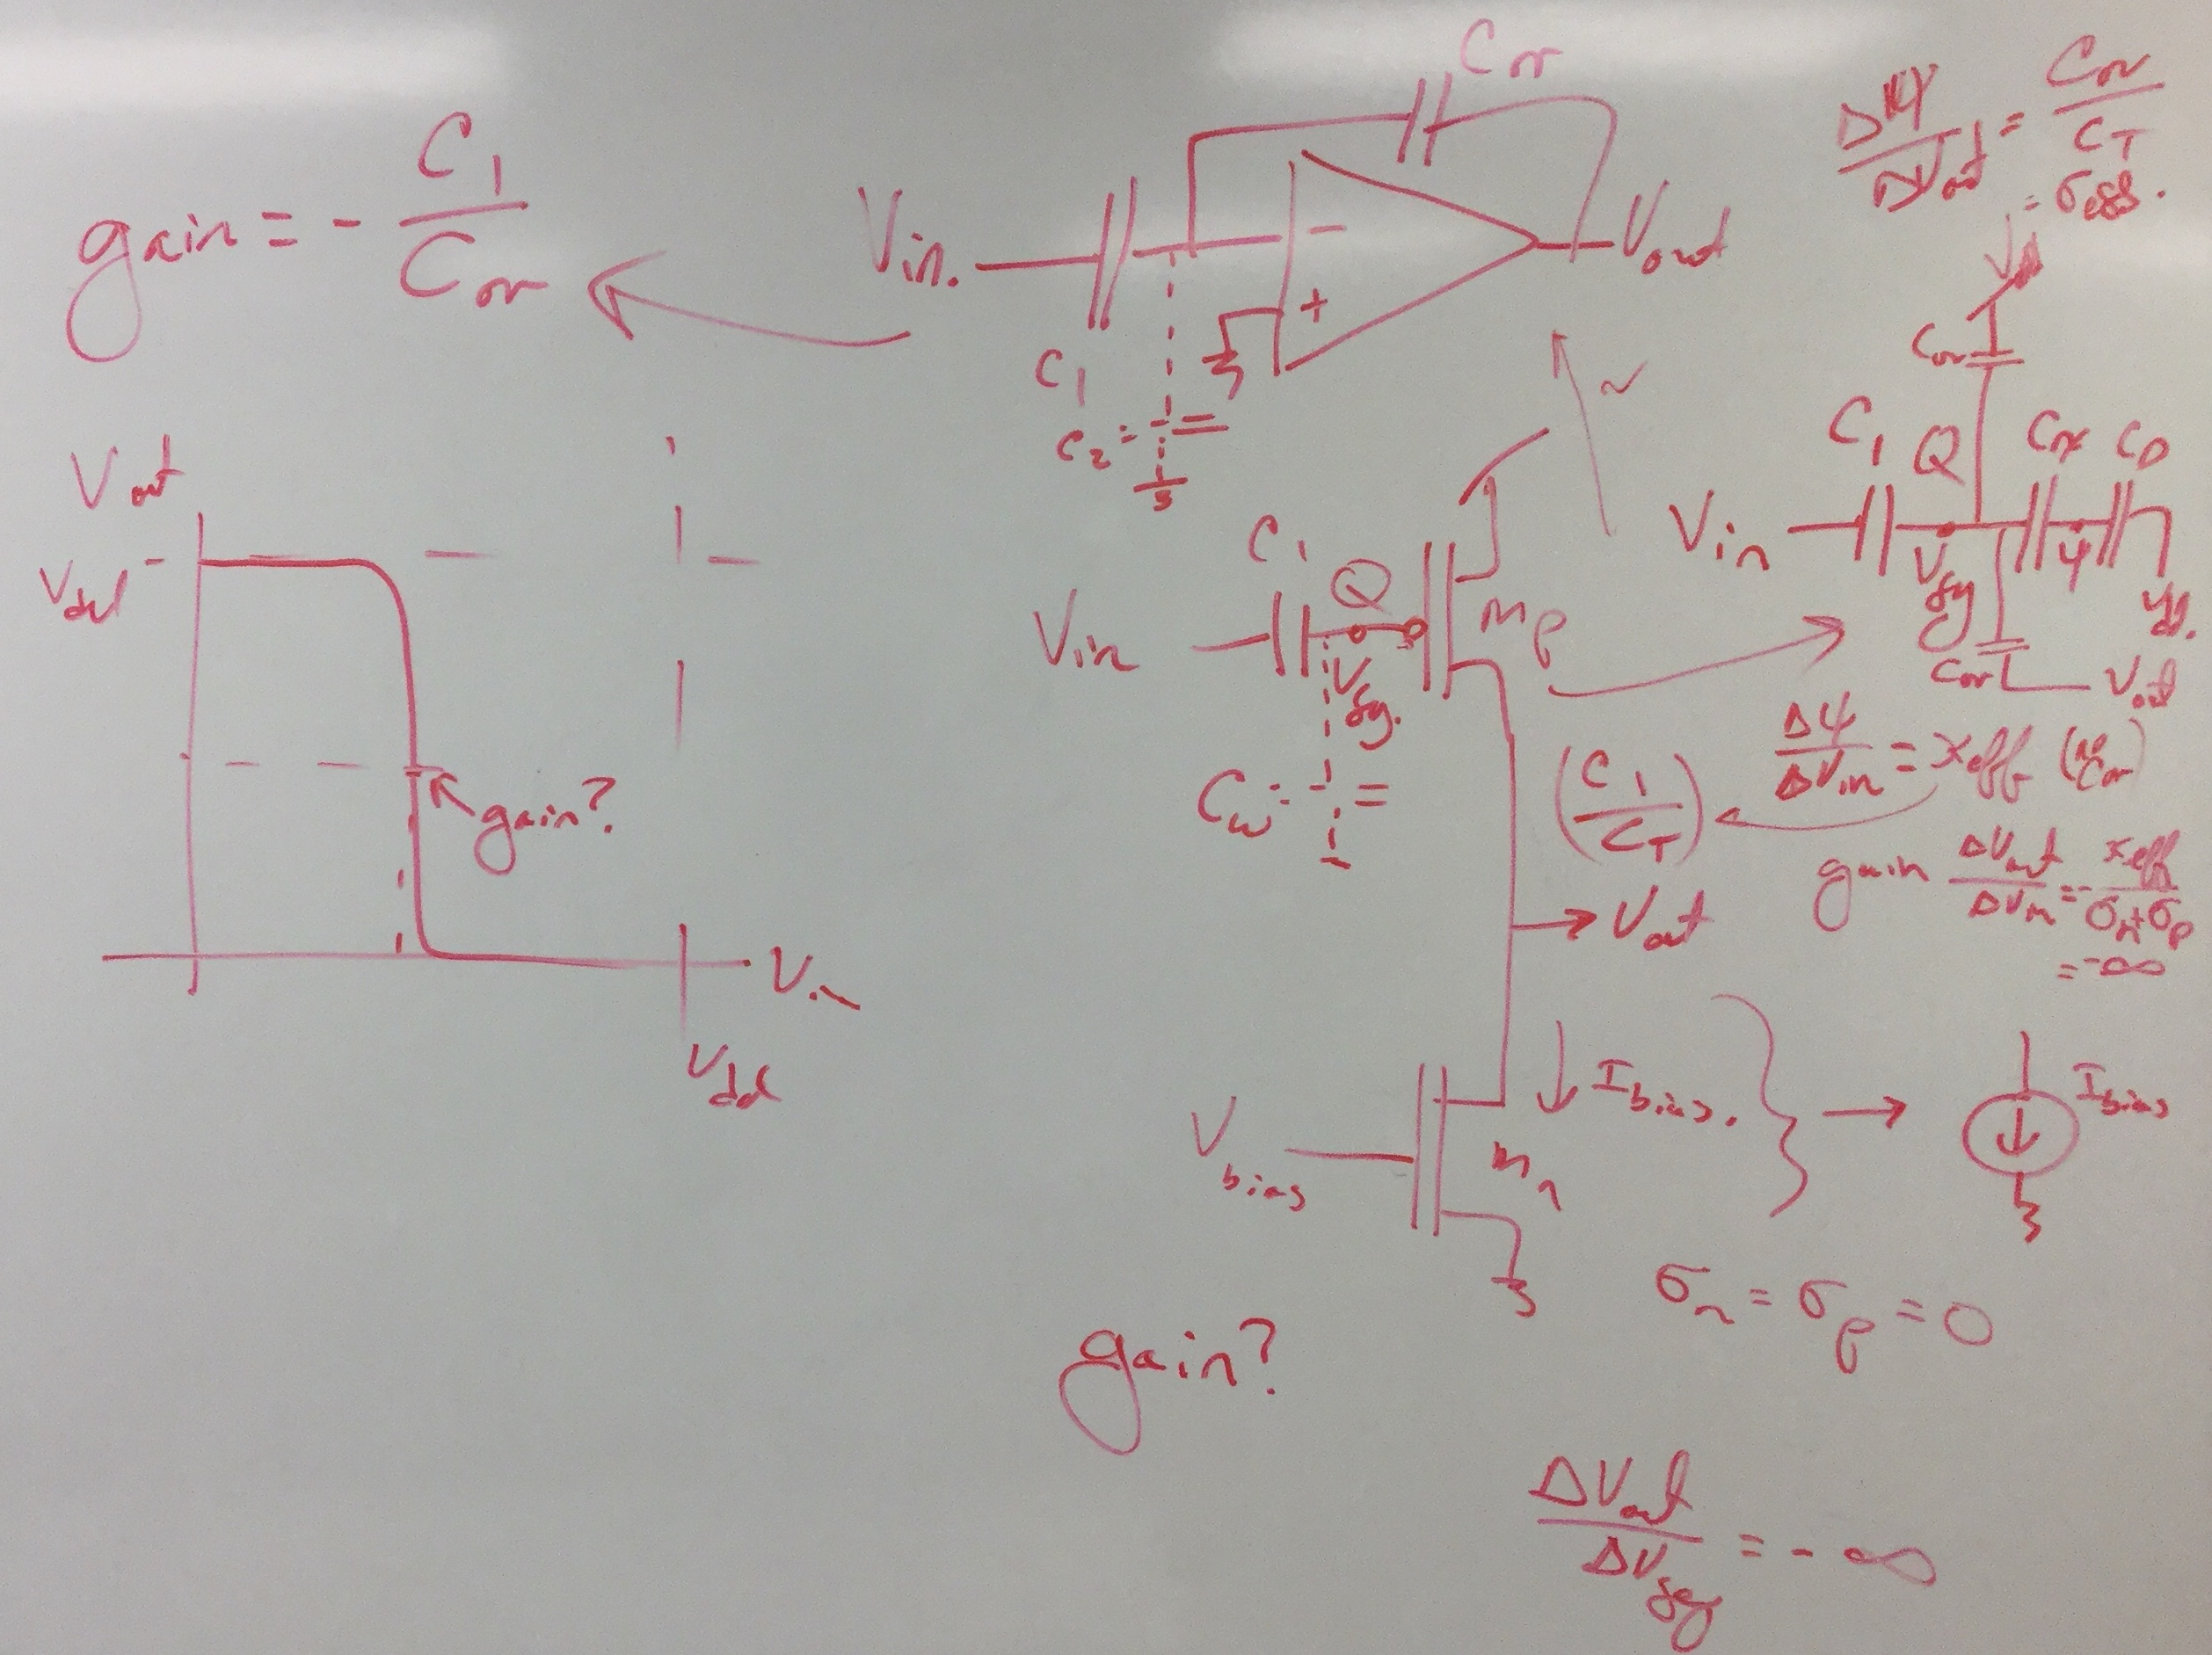 gain = - C1 / Cov
Cov
Vin.
-
+
Vout
C1
C2
ΔΨ / ΔVout = Cov / CT
= σeff.
Vdd
Cov
C1 Q Cox CD
Vin
Vfg
Ψ
Vdd.
Cov
Vout
Vout
Vdd
gain?
Vin
Vdd
C1
Q
Vin
Vfg.
Mp
Cw
(C1 / CT)
ΔΨ / ΔVin = κeff (no Cov)
gain ΔVout / ΔVin = - κeff / σn+σp
= -∞
Vout
Ibias.
Ibias
Vbias
Mn
σn = σp = 0
gain?
ΔVout / ΔVfg = - ∞